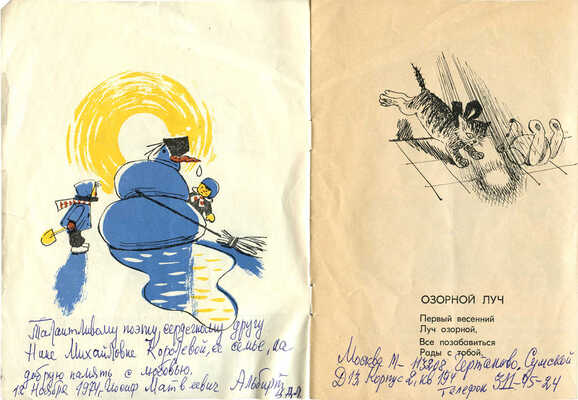 Талантливому поэту, сердечному другу
Нине Михайловне Королевой, её семье, на
добрую память с любовью.
12 Ноября 1974, Иосиф Матвеевич Альбирт
ОЗОРНОЙ ЛУЧ
Первый весенний
Луч озорной,
Все позабавиться
Рады с тобой.
Москва М- 113208 Чертаново, Сумской
Д13 Корпус 2, кв 194
Телефон 311-95-24